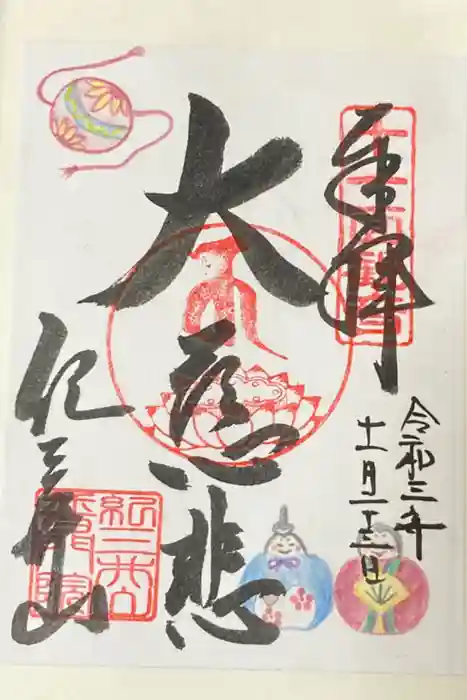 奉拝
令和三年
十一月二十三日
大慈悲
紀三井山